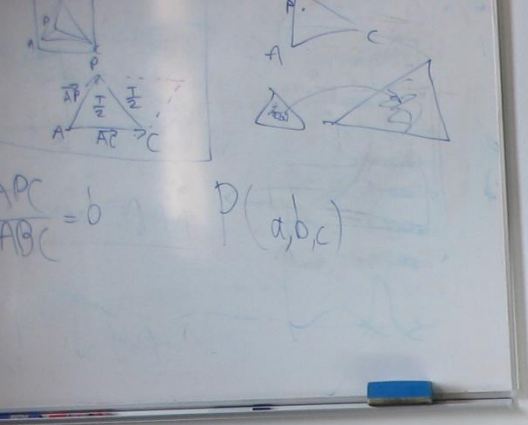 P
A
P
A
C
P
AP
T/2
T/2
A
AC
C
APC/ABC = b
P(a,b,c)